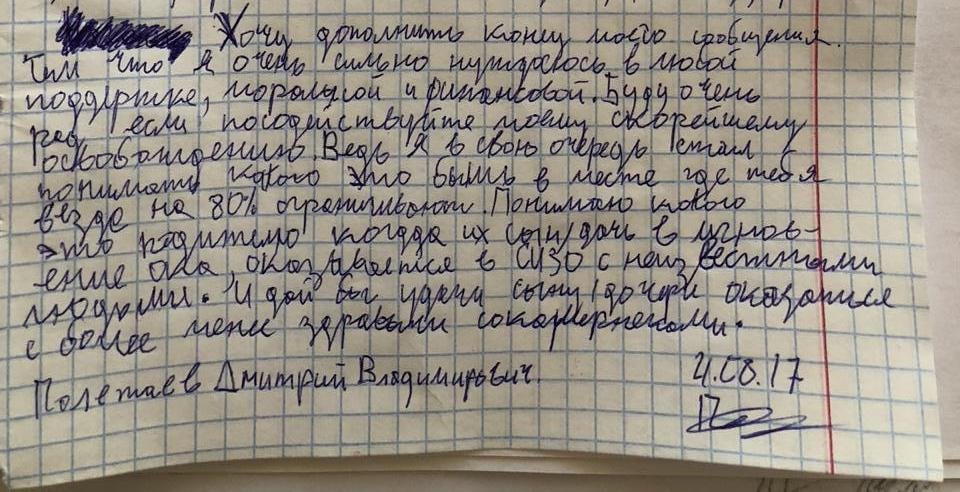 Хочу дополнить конец моего сообщения.
Тем что я очень сильно нуждаюсь в любой
поддержке, моральной и финансовой. Буду очень
рад если посодействуйте моему скорейшему
освобождению. Ведь я в свою очередь стал
понимать какого это быть в месте где тебя
везде на 80% ограничивают. Понимаю какого
это родителю когда их сын/дочь в мгнов-
ение ока, оказывается в СИЗО с неизвестными
людьми. И дай бог удачи сыну/дочери оказаться
с более мене здравыми сокамерниками.
Полетаев Дмитрий Владимирович.
4.08.17